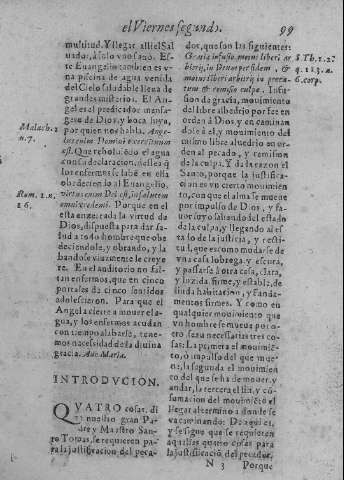 el Viernes segundo.
99
multitud. Y llegar alli el Sal
uador, à solo vno sanò. Es-
te Euangelio tambien es v-
na piscina de agua venida
del Cielo saludable llena de
grandes misterios. El An-
gel es el predicador mensa-
gero de Dios, y boca suya,
por quien nos habla. Ange-
lus enim Domini exercituum
est. Que reboluiò el agua
con su declaracion, dessea q̃
los enfermos se labẽ en ella
obedeciendo al Euangelio.
virtus enim Dei est, in salutem
omni credenti. Porque en el
esta encerrada la virtud de
Dios, dispuesta para dar sa-
lud a todo hombre que obe
deciendole, y obrando, y la
bandose viuamente le creye
re. En el auditorio no fal-
tan enfermos, que en cinco
portales da cinco sentidos
adolescieron. Para que el
Angel acierte a mouer el a-
gua, y los enfermos acudan
con tiempo a labarse, tene-
mos necessidad de la diuina
gracia. Aue Maria.
Malach. 2
n. 7.
Rom. 1. n.
16.
INTRODVCION.
QVATRO cosas, di
ze nuestro gran Pa-
dre y Maestro San-
to Tomas, se requieren pa-
ra la justificacion del peca-
dor, que son las siguientes:
Gratiæ infusio, motus liberi ar
bitrij, in Deum per fidem, &
motus liberi arbitrij in pecca-
tum & remisio culpæ. Infu-
sion de gracia, mouimiento
del libre aluedrio por fee en
orden à Dios, y en caminan
dole à el, y mouimiento del
mismo libre aluedrio en or-
den al pecado, y remision
de la culpa. Y da la razon el
Santo, porque la justifica-
cion es vn cierto mouimiẽ-
to, con que el alma se mueue
por impulso de Dios, y fa-
uor suyo saltando del estado
de la culpa, y llegando al es
tado de la justicia, y resti-
tud, que es como mudarse de
vna casa lobrega, y escura,
y passarse à otra casa, clara,
y luzida, firme, y estable, de
linda habitacion, y funda-
mentos firmes. Y como en
qualquier mouimiento que
vn hombre se mueua por o-
tro sean necessarias tres co-
sas: La primera el mouimiẽ-
to, ò impulso del que mue-
ue, la segunda el mouimien
to del que se ha de mouer, y
andar, la tercera el fin, y cõ-
sumacion del mouimiẽto el
llegar al termino a donde se
va caminando: De aqui es,
y se sigue que se requieren
aquellas quatro cosas para
la justificacion del pecador.
S. Th. 1. 2.
q. 113. a.
6. corp.
N 3
Porque